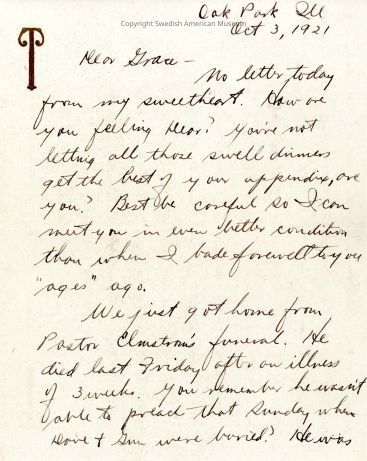 Copyright Swedish American Museum
Oak Park Ill
Oct 3, 1921
T
Dear Grace -
No letter today
from my sweetheart. How are
you feeling Dear? You're not
letting all those swell dinners
get the best of your appendix, are
you? Best be careful so I can
meet you in even better condition
than when I bade farewell to you
"ages" ago.
We just got home from
Pastor Elmstrom's funeral. He
died last Friday after an illness
of 3 weeks. You remember he wasn't
able to preach that Sunday when
+ were buried? He was